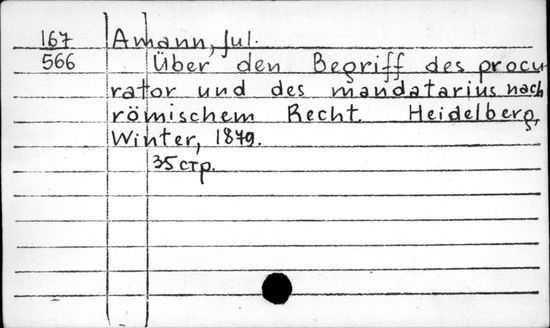 167 Amann, Jul.
566 Über den Begriff des procu-
rator und des mandatarius nach
römischem Recht. Heidelberg,
Winter, 1879.
35 стр.